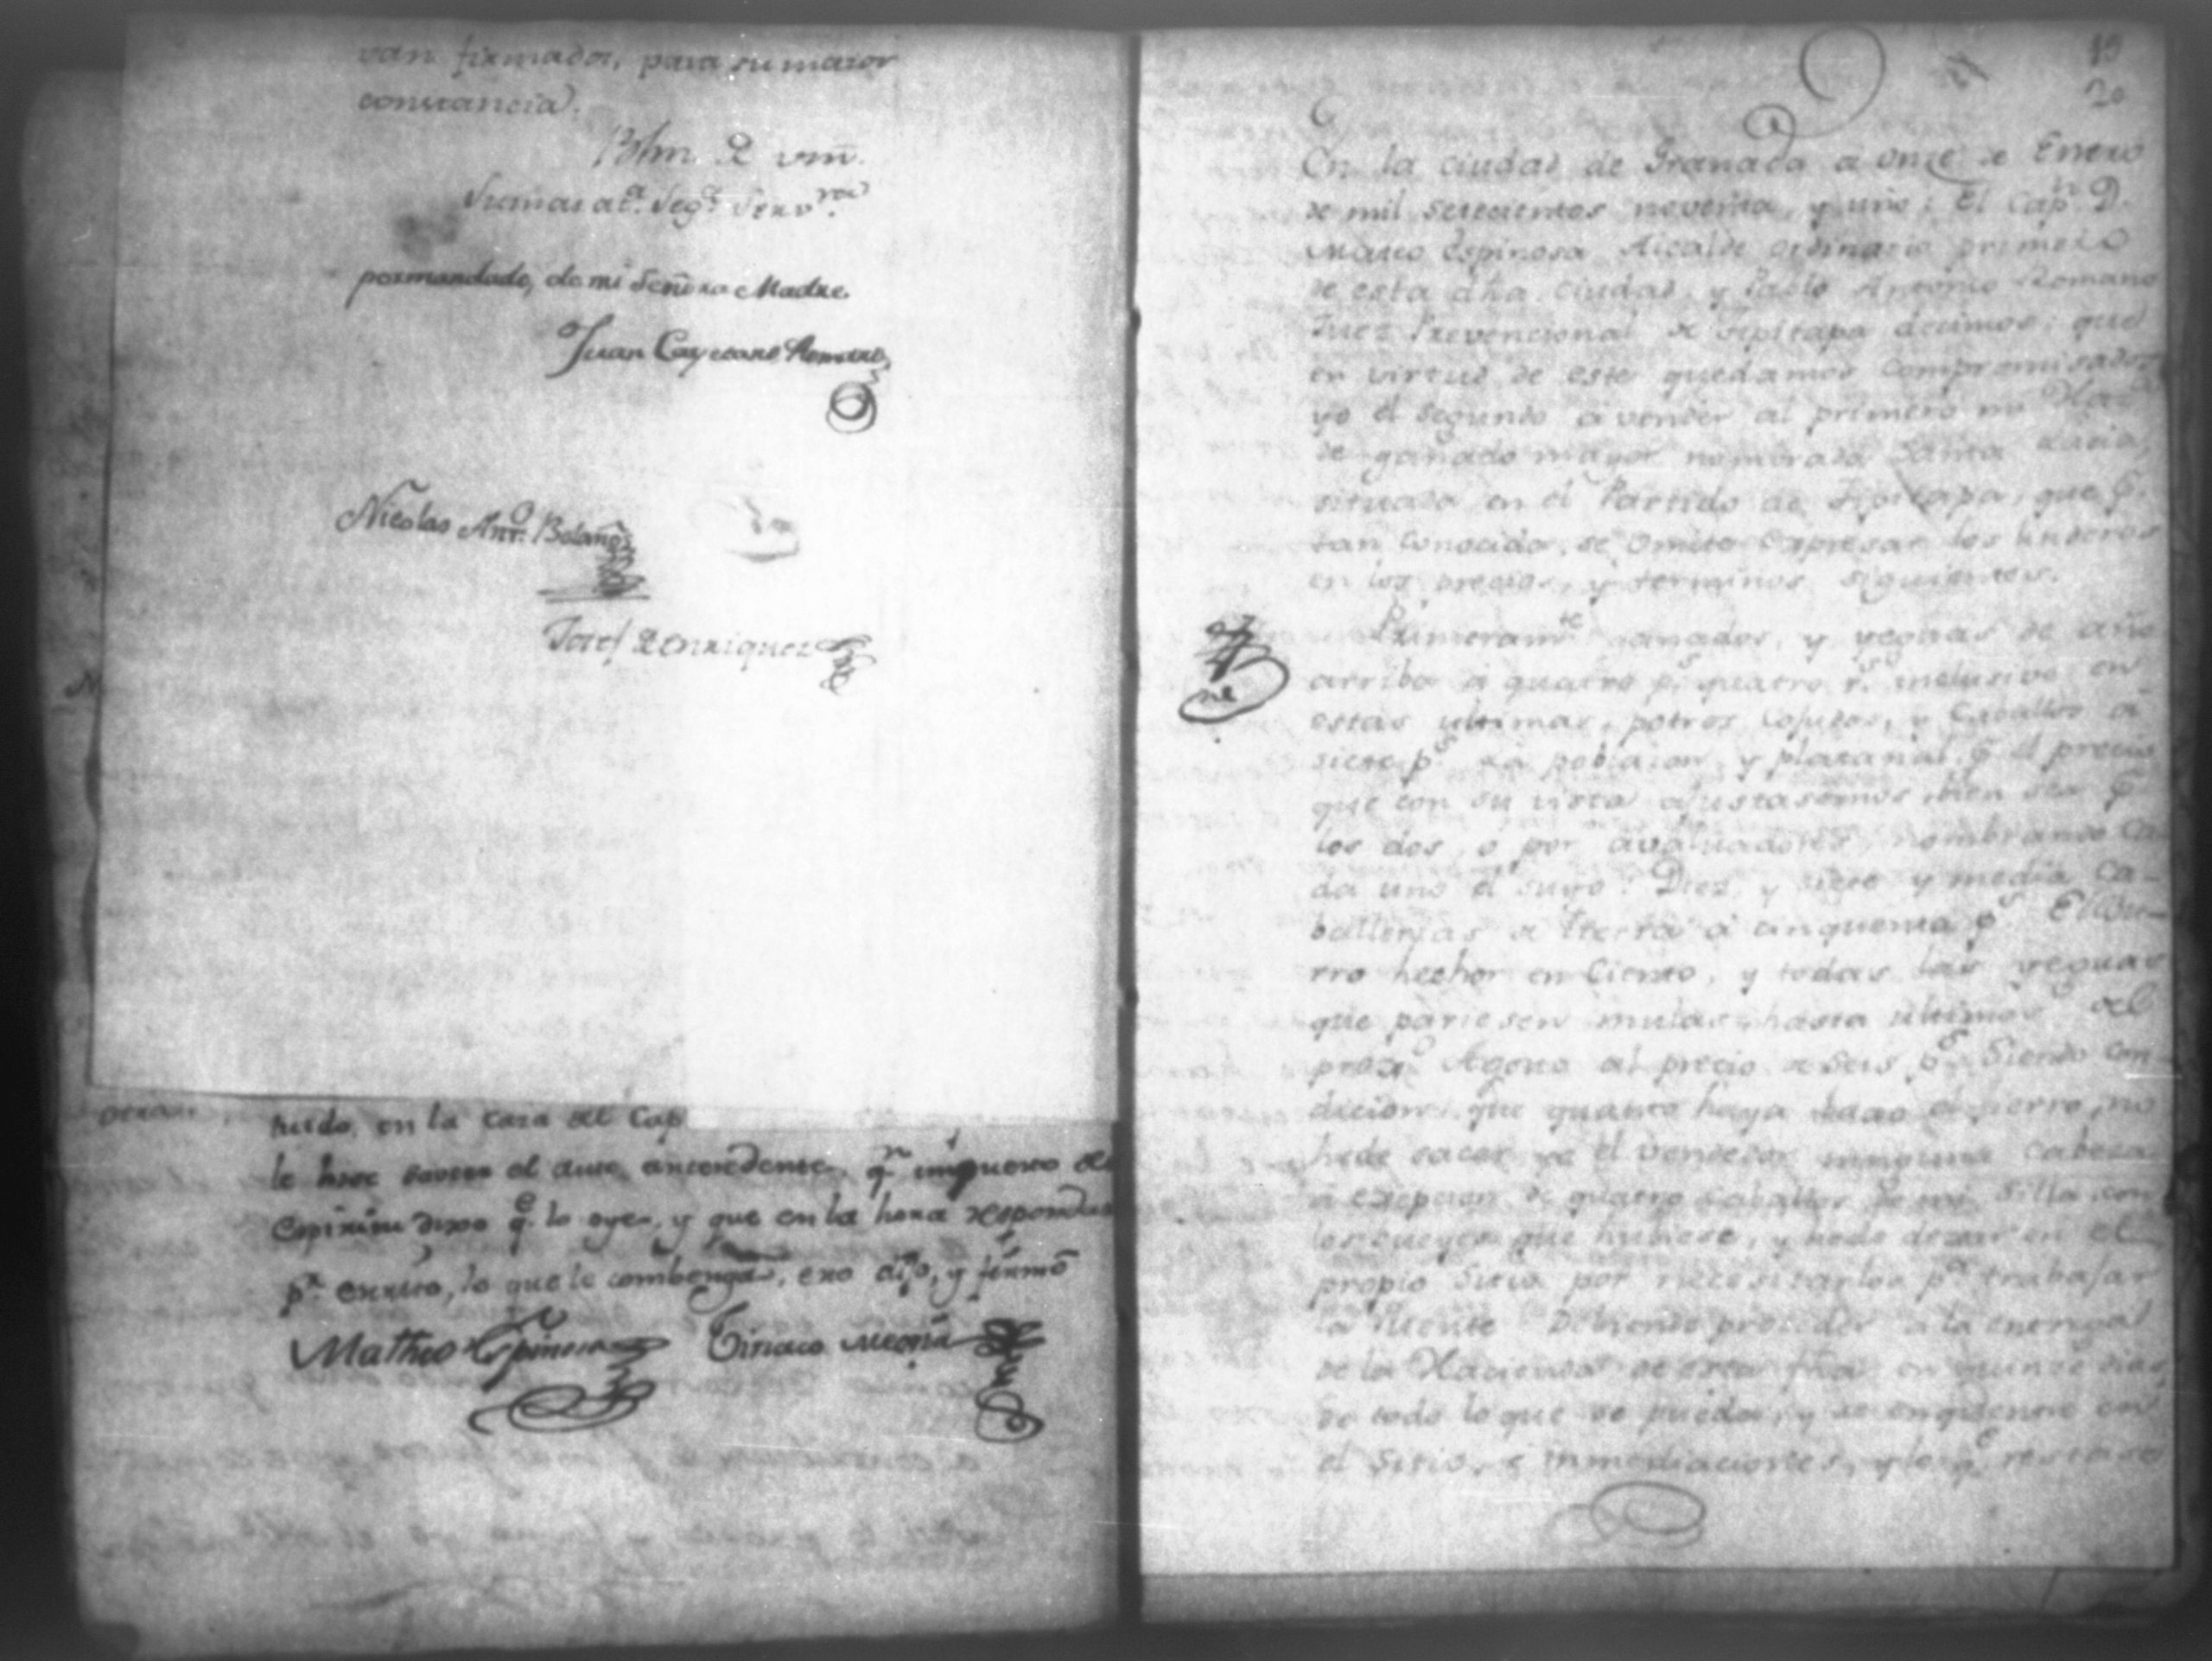 van firmados, para su maior
constancia.
Blm. de vm.
su mas at.ª seg.ª serv.ra
pormandado, de mi Señora Madre.
Juan Cayetano Romero
Nicolas Ant.o Bolaños
Josef Enriquez
huido, en la casa del Cap
le hise saver el auto antecedente, q.n impuesto de
dixo q.e lo oye, y que en la hora respondera
p.r escrito, lo que le combenga, eso dijo, y firmó
Matheo Espinosa Ciriaco
19
20
En la ciudad de Granada a onze de Enero
de mil setecientos noventa, y uno: El Cap.n D.
Mateo Espinosa Alcalde ordinario primero
de esta dha. ciudad, y Pablo Antonio Romano
Juez Prevencional de Tipitapa decimos: que
en virtud de este quedamos compromisados
yo el segundo a vender al primero mi Haz.da
de ganado mayor nombrada Santa Lucia,
situada en el Partido de Tipitapa, que p.r
tan conocida, se omite expresar los linderos
en los precios, y terminos siguientes.
Primeram.te ganados, y yeguas de año
arriba a quatro p.s quatro r.s inclusive en
estas ultimas, potros y Caballos a
siete p.s La poblacion, y platanal p.r el precio
que con su vista ajustasemos bien sea p.r
los dos, o por avaluadores, nombrando ca-
da uno el suyo. Diez, y siete y media ca-
ballerias de tierra a cinquenta p.s El bu-
rro hechor en Ciento, y todas las yeguas
que pariesen mulas hasta ultimos del
prox.o Agosto al precio de seis p.s Siendo con-
dicion, que quanto haya el fierro, no
hede sacar yo el vendedor ninguna cabeza
a esepcion de quatro caballos de mi silla, con
los bueyes que hubiese, y hede dexar en el
propio sitio por necesitarlos p.a trabajar
la Debiendo proceder a la entrega
de la Hacienda de esta fha. en quinze dias,
de todo lo que se pueda, y se enquentre en
el Sitio, e inmediaciones, y lo q.e restase